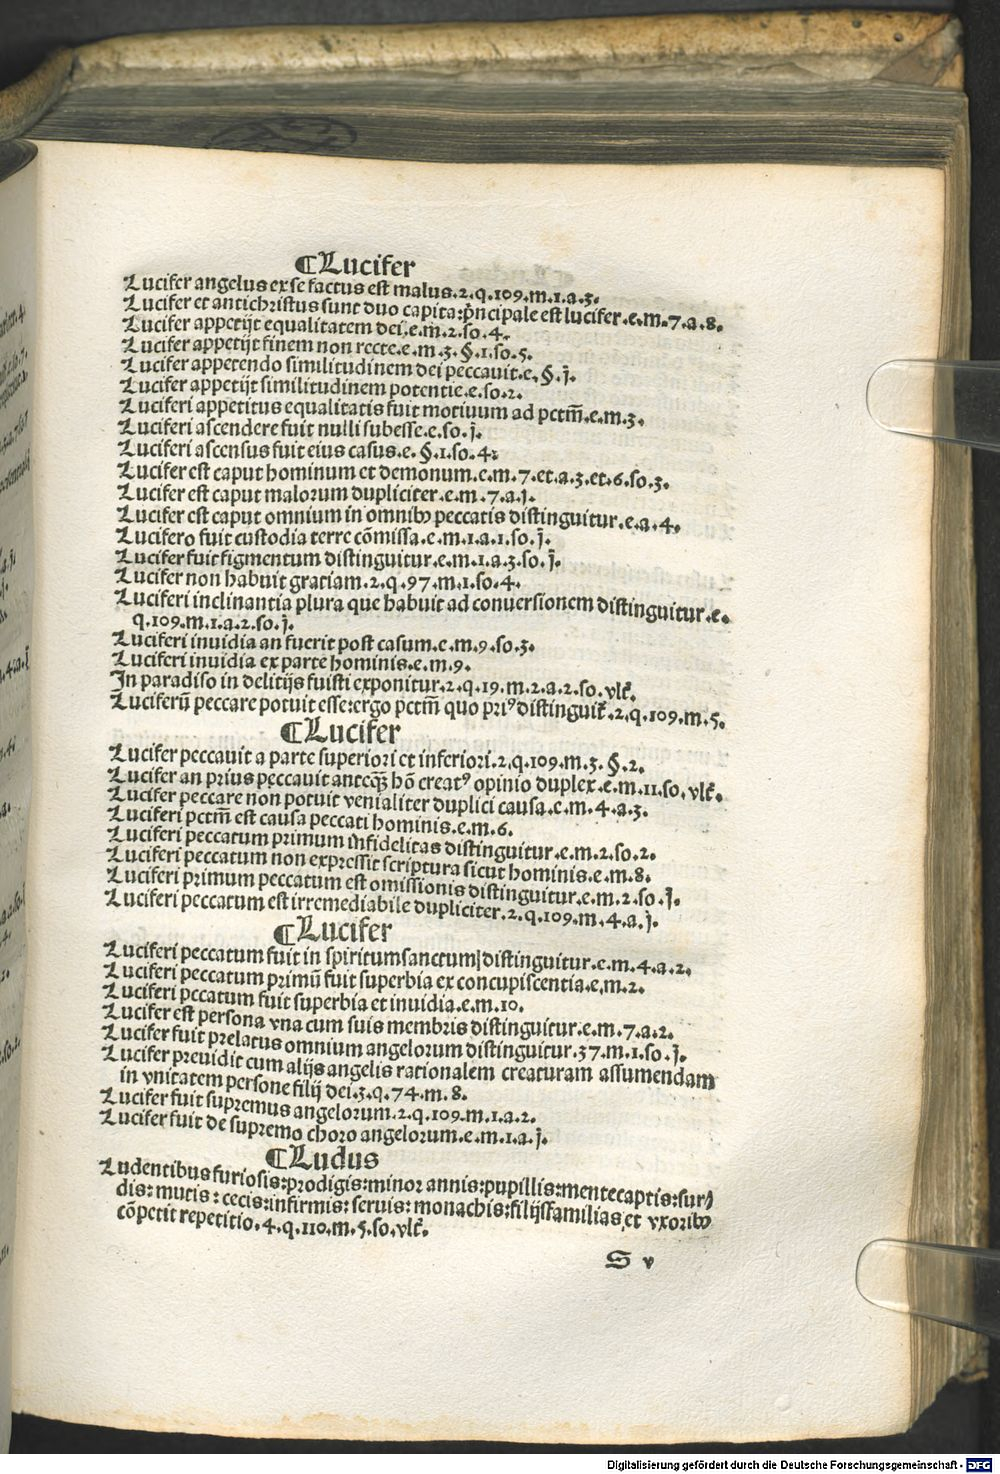 ¶Lucifer
Lucifer angelus ex se factus est malus.2.q.109.m.1.a.3.
Lucifer et antichristus sunt duo capita:pͥncipale est lucifer.e.m.7.a.8.
Lucifer appetijt equalitatem dei.e.m.2.so.4.
Lucifer appetijt finem non recte.e.m.3.§.1.so.5.
Lucifer appetendo similitudinem dei peccauit.e.§.j.
Lucifer appetijt similitudinem potentie.e.so.2.
Luciferi appetitus equalitatis fuit motiuum ad pctm̄.e.m.3.
Luciferi ascendere fuit nulli subesse.e.so.j.
Luciferi ascensus fuit eius casus.e.§.1.so.4:
Lucifer est caput hominum et demonum.e.m.7.et.a.3.et.6.so.3.
Lucifer est caput malorum dupliciter.e.m.7.a.j.
Lucifer est caput omnium in omnibꝰ peccatis distinguitur.e.a.4.
Lucifero fuit custodia terre cōmissa.e.m.1.a.1.so.j.
Lucifer fuit figmentum distinguitur.e.m.1.a.3.so.j.
Lucifer non habuit gratiam.2.q.97.m.1.so.4.
Luciferi inclinantia plura que habuit ad conuersionem distinguitur.e.
q.109.m.1.a.2.so.j.
Luciferi inuidia an fuerit post casum.e.m.9.so.3.
Luciferi inuidia ex parte hominis.e.m.9.
In paradiso in delitijs fuisti exponitur.2.q.19.m.2.a.2.so.vlt̄.
Luciferū peccare potuit esse:ergo pctm̄ quo priꝰ distinguit̄.2.q.109.m.5.
¶Lucifer
Lucifer peccauit a parte superiori et inferiori.2.q.109.m.3.§.2.
Lucifer an prius peccauit anteqꝫ hō creatꝰ opinio duplex.e.m.11.so.vlt̄.
Lucifer peccare non potuit venialiter duplici causa.e.m.4.a.3.
Luciferi pctm̄ est causa peccati hominis.e.m.6.
Luciferi peccatum primum infidelitas distinguitur.e.m.2.so.2.
Luciferi peccatum non expressit scriptura sicut hominis.e.m.8.
Luciferi primum peccatum est omissionis distinguitur.e.m.2.so.j.
Luciferi peccatum est irremediabile dupliciter.2.q.109.m.4.a.j.
¶Lucifer
Luciferi peccatum fuit in spiritumsanctum distinguitur.e.m.4.a.2.
Luciferi peccatum primū fuit superbia ex concupiscentia.e.m.2.
Luciferi pccatum fuit superbia et inuidia.e.m.10.
Lucifer est persona vna cum suis membris distinguitur.e.m.7.a.2.
Lucifer fuit prelatus omnium angelorum distinguitur.37.m.1.so.j.
Lucifer preuidit cum alijs angelis rationalem creaturam assumendam
in vnitatem persone filij dei.3.q.74.m.8.
Lucifer fuit supremus angelorum.2.q.109.m.1.a.2.
Lucifer fuit de supremo choro angelorum.e.m.1.a.j.
¶Ludus
Ludentibus furiosis:prodigis:minor annis:pupillis:mentecaptis:sur⸗
dis:mutis:cecis:infirmis:seruis:monachis:filijsfamilias et vxoribꝰ
cōpetit repetitio.4.q.110.m.5.so.vlt̄.
S v
Digitalisierung gefördert durch die Deutsche Forschungsgemeinschaft - DFG